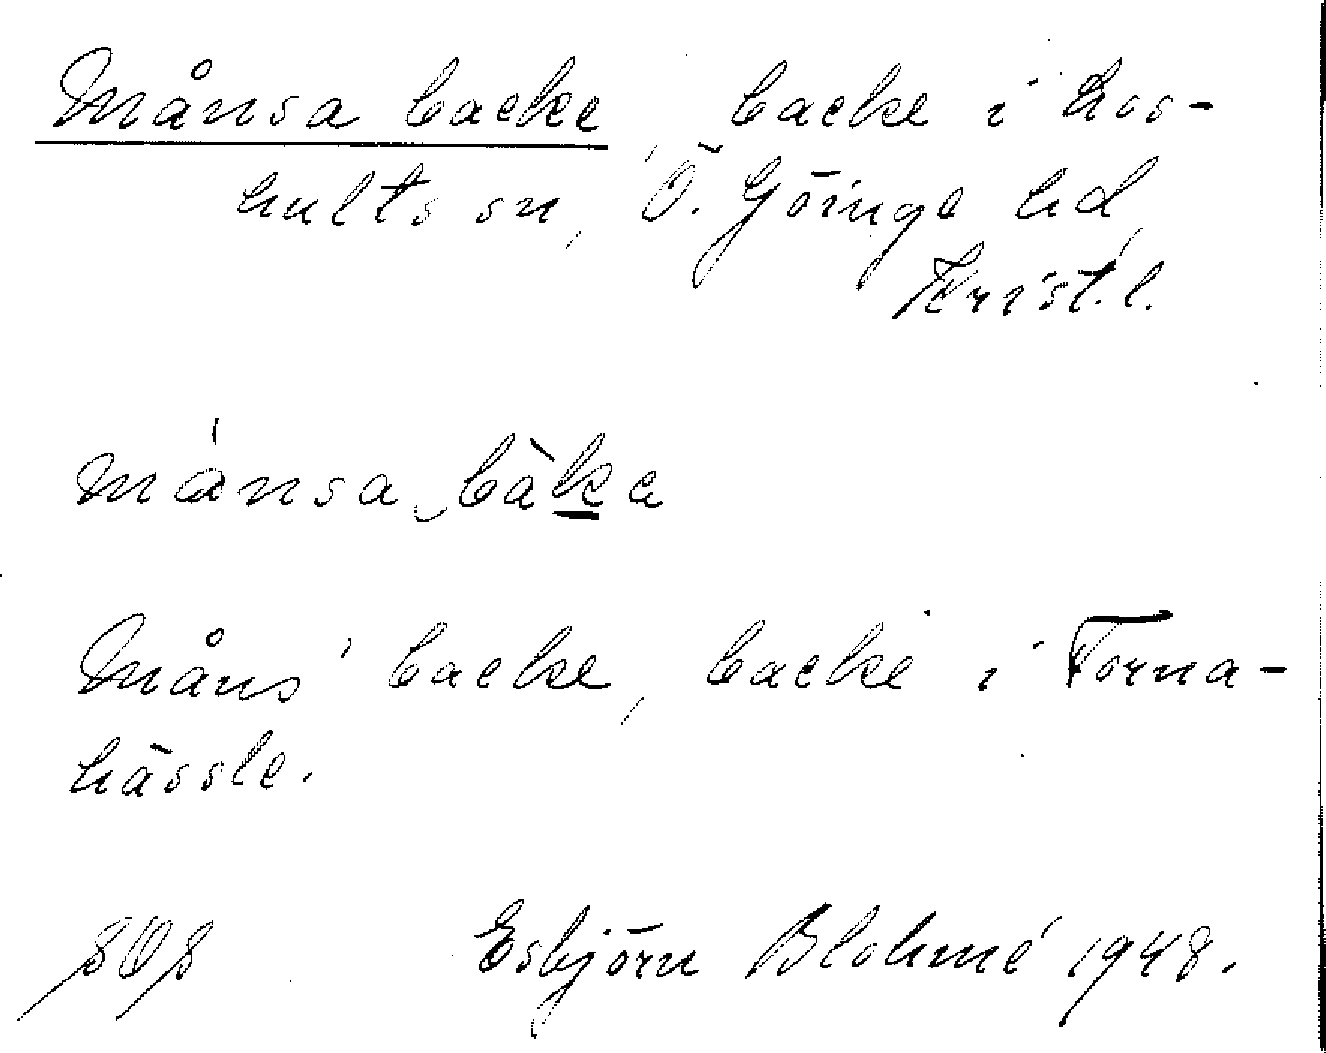 Månsa backe, backe i Los-
hults sn, Ö. Göinge hd,
Krist. l.
månsa bàka
Måns' backe, backe i Torna-
hässle.
Esbjörn Blohmé 1948.